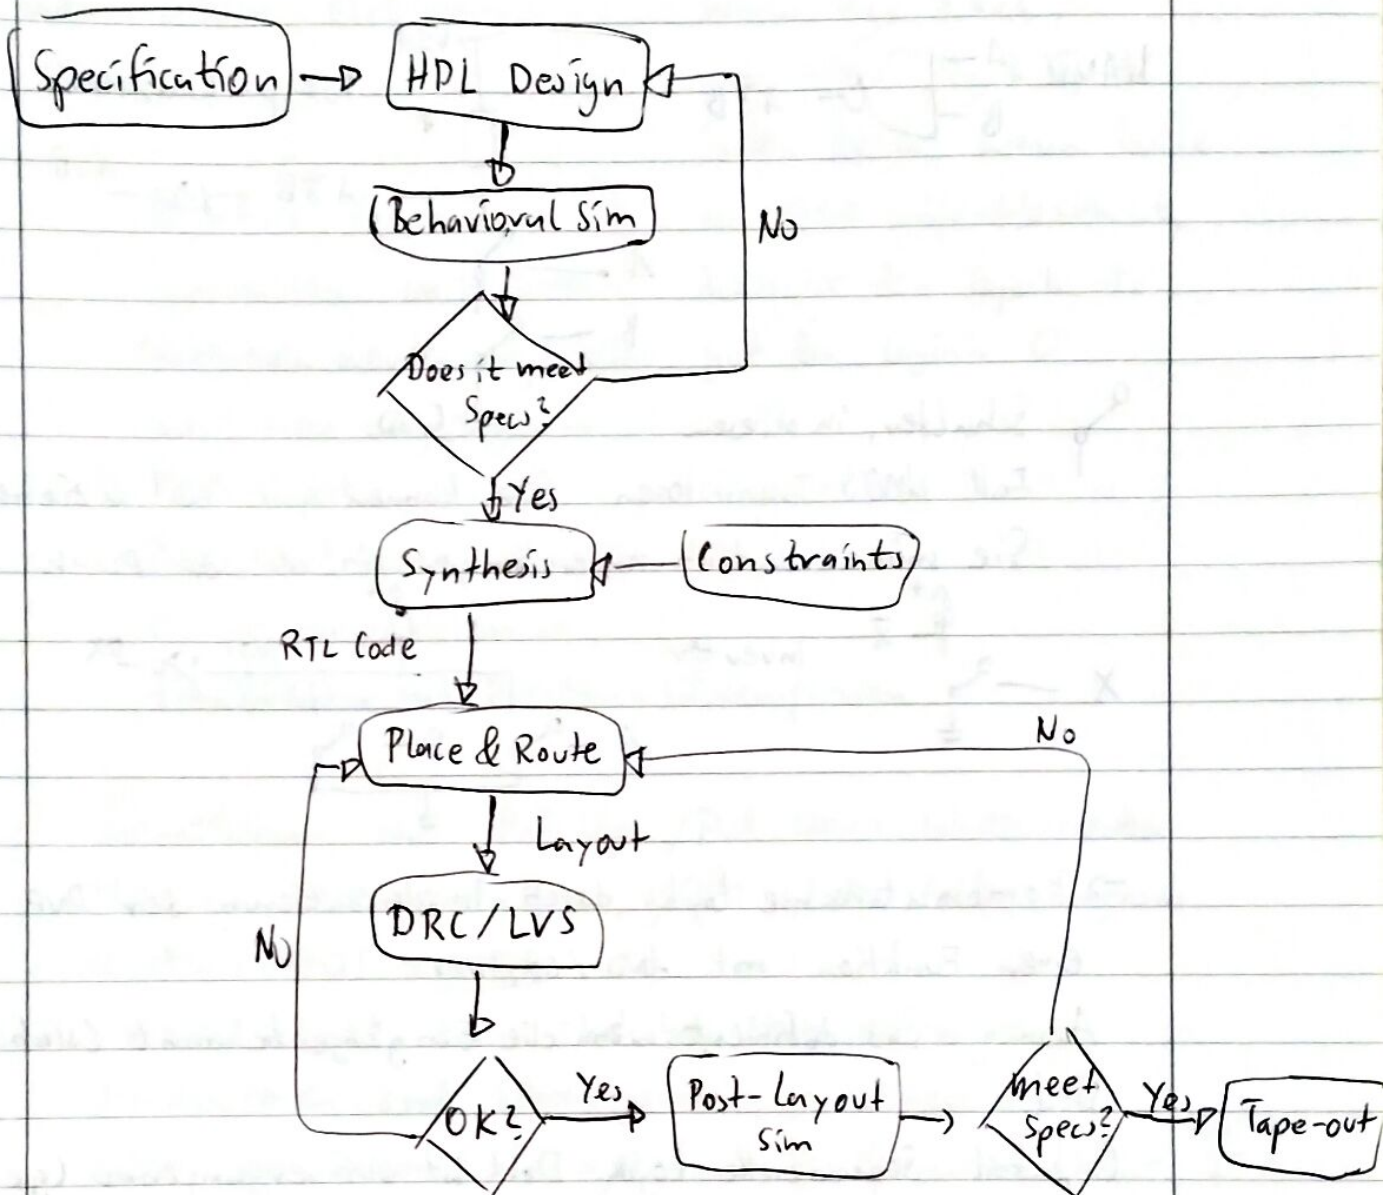 Specification
HDL Design
No
Behavioral Sim
Does it meet
Specs?
Yes
Synthesis
Constraints
RTL Code
Place & Route
No
Layout
DRC/LVS
No
OK?
Yes
Post-Layout
Sim
meet
Specs?
Yes
Tape-out